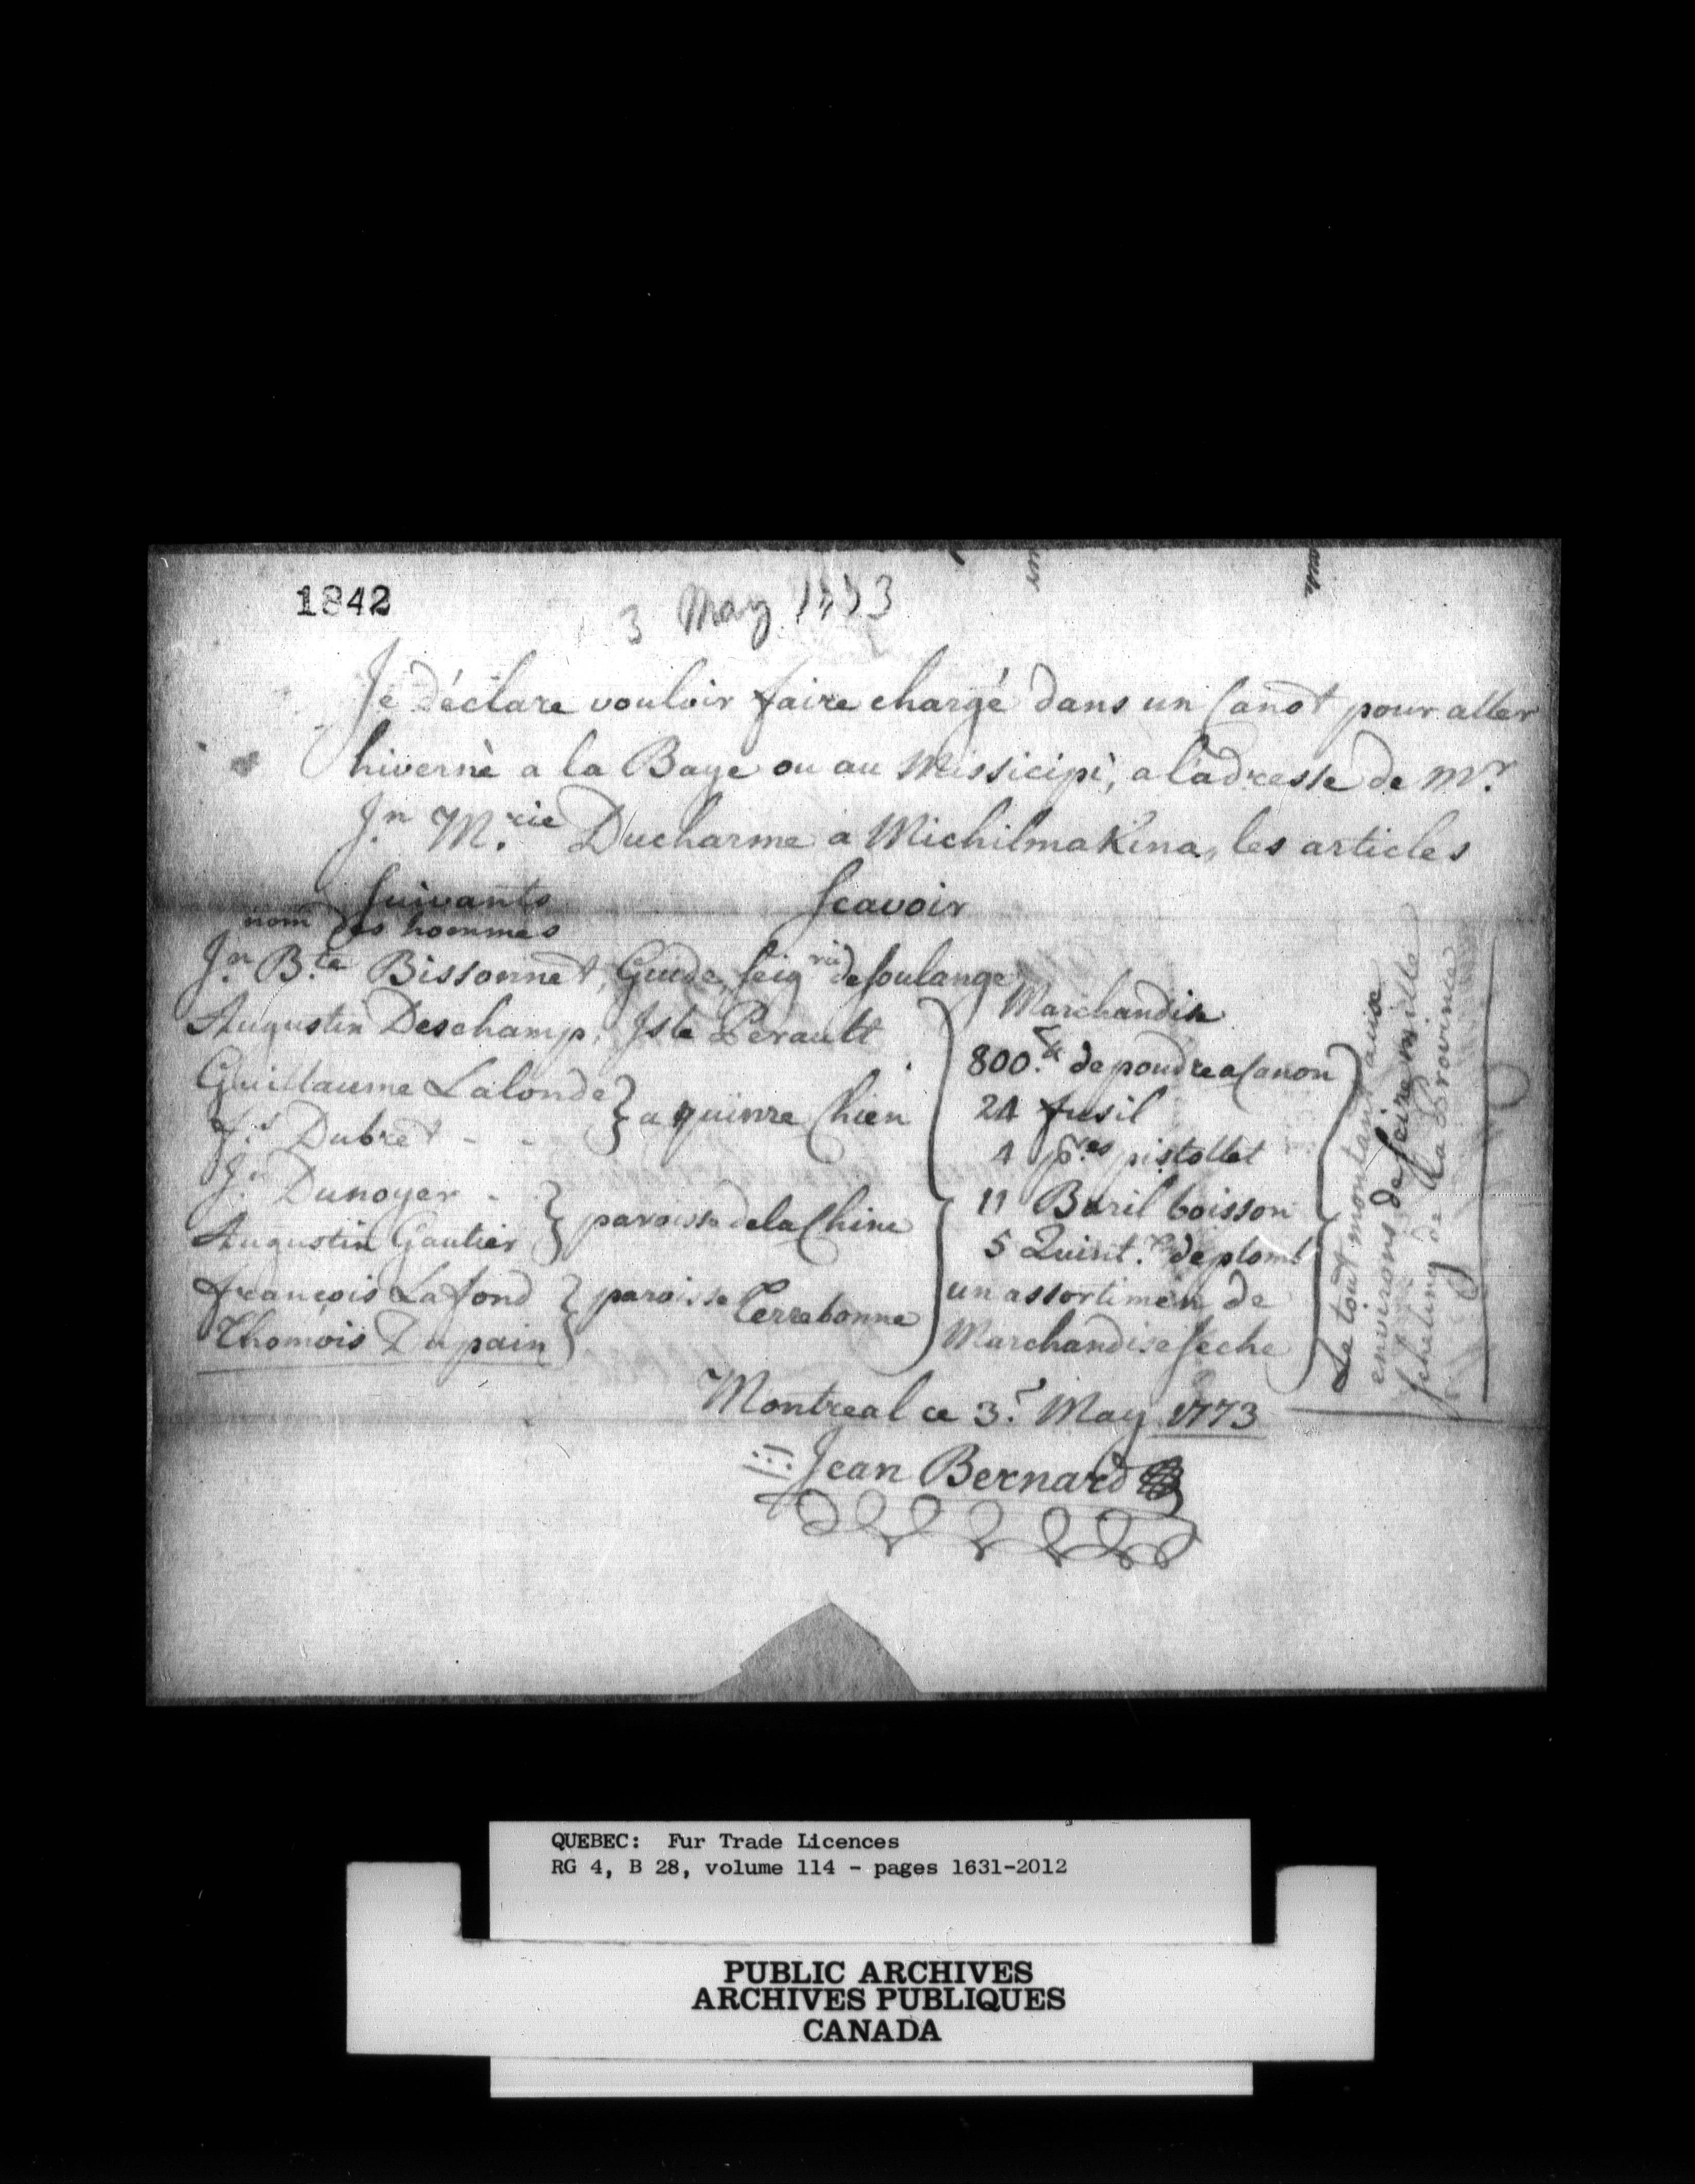 1842
3 May 1773
Je déclare vouloir faire chargé dans un Canot pour aller
hivernè a la Baye ou au Missicipi, a l'adresse de Mr.
Jn Mrie Ducharme a Michilmakina, les articles
Suivants Scavoir
nom des hommes
Jn Bte Bissonnet, Guide, Seigrie de Soulange
Augustin Deschamp, Isle Perault
Guillaume Lalonde
fs Dubret - - } a quinze Chien
Jn Dunoyer -
Augustin Gautier } paroisse de la Chine
françois Lafond } paroisse Terrebonne
Thomois Dupain
Marchandise
800 lb de poudre a Canon
24 fusil
4 pres pistollet
11 Baril boisson
5 Quint. de plomb
un assortimen de
Marchandise Seche
Le tout montant
environs de Seize mille
Scheling de La Province
Montreal ce 3r May 1773
Jean Bernard
QUEBEC: Fur Trade Licences
RG 4, B 28, volume 114 - pages 1631-2012
PUBLIC ARCHIVES
ARCHIVES PUBLIQUES
CANADA